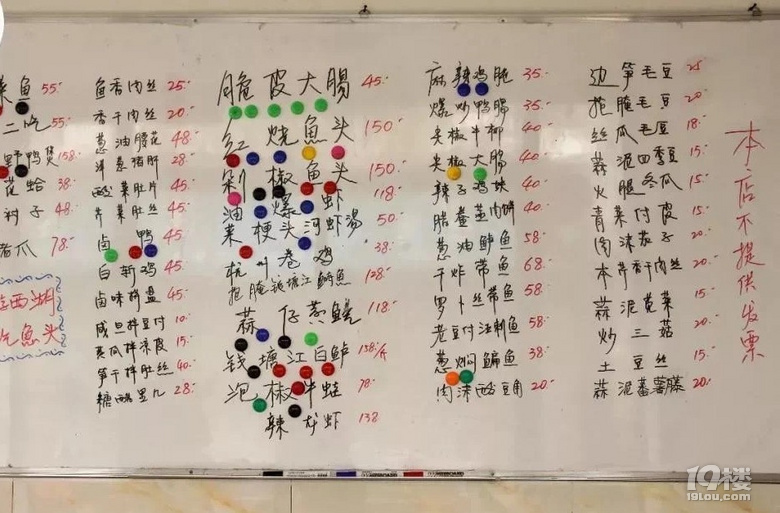 菜鱼 55.
二吃 55.
野鸭煲 158.
花蛤 38.
肘子 48.
爪 78.
西湖
吃鱼头
鱼香肉丝 25.
香干肉丝 20.
葱油腰花 48.
洋葱猪肝 28.
酸菜肚片 45.
芹菜肚丝 45.
卤鸭 45.
白斩鸡 45.
卤味拼盘 45.
咸旦拌豆付 10.
黄瓜拌凉皮 15.
笋干拌肚丝 40.
糖醋里几 28.
脆皮大腸 45.
红烧魚头 150.
剁椒鱼头 150.
油爆虾 118.
菜梗头河虾湯 50.
杭州卷鸡 38.
抱腌钱塘江鲚魚 128.
蒜仔蒸鳗 118.
钱塘江白鲈 138/斤
泡椒牛蛙 78.
辣龙虾 138
麻辣鸡脆 35.
爆炒鸭腸 35.
尖椒牛柳 40.
尖椒大腸 40.
辣子鸡块 40.
腊鲞蒸肉饼 40.
葱油鲈鱼 58.
干炸带鱼 68.
罗卜丝带鱼 58.
老豆付汪刺鱼 58.
葱焖鳊鱼 38.
肉沫酸豆角 20.
边笋毛豆 25
抱腌毛豆 20.
丝瓜毛豆 18.
蒜泥四季豆 15.
火腿冬瓜 15.
青菜付皮 15.
肉沫茄子 20.
本芹香干肉丝 20.
蒜泥苋菜 15.
炒三菇 20.
土豆丝 15.
蒜泥蕃薯藤 20.
本店不提供发票
19楼
19lou.com